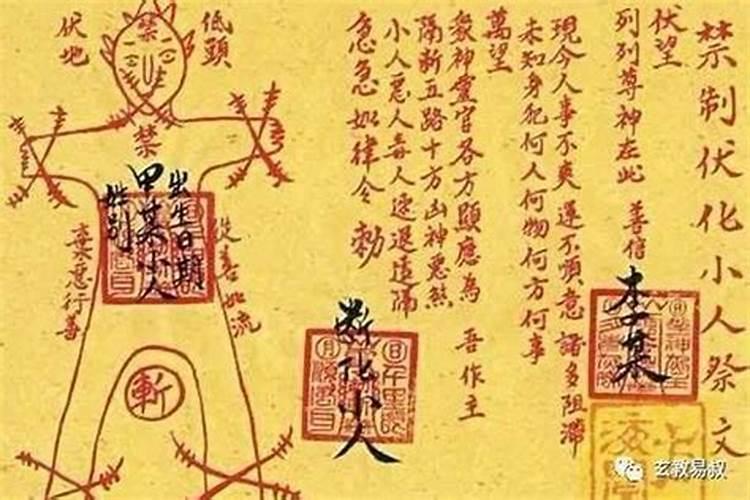 禁制伏化小人祭文
伏望
列列尊神在此 善信
李某
現今人事不爽 運不順意 諸多阻滯
未知身犯何人何物何方何事
萬望
眾神靈官各方顯應為 吾作主
隔斷五路十方凶神惡煞
小人惡人毒人速退遠隔
急急如律令 勅
斷化小人
低頭
伏地
禁
禁
出生日期
甲某小人
性别
棄惡行善
從善如流
斬
玄教易叔